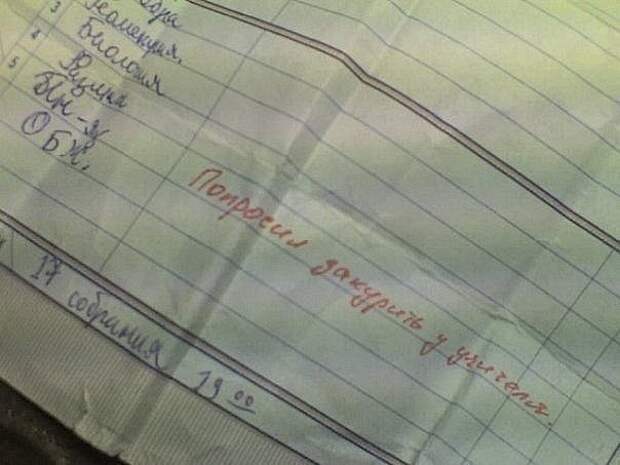 3
Геометрия.
4
Биология
Физика
5
Ин-яз
ОБЖ.
Попросил закурить у учителя.
17 собрания 19 00